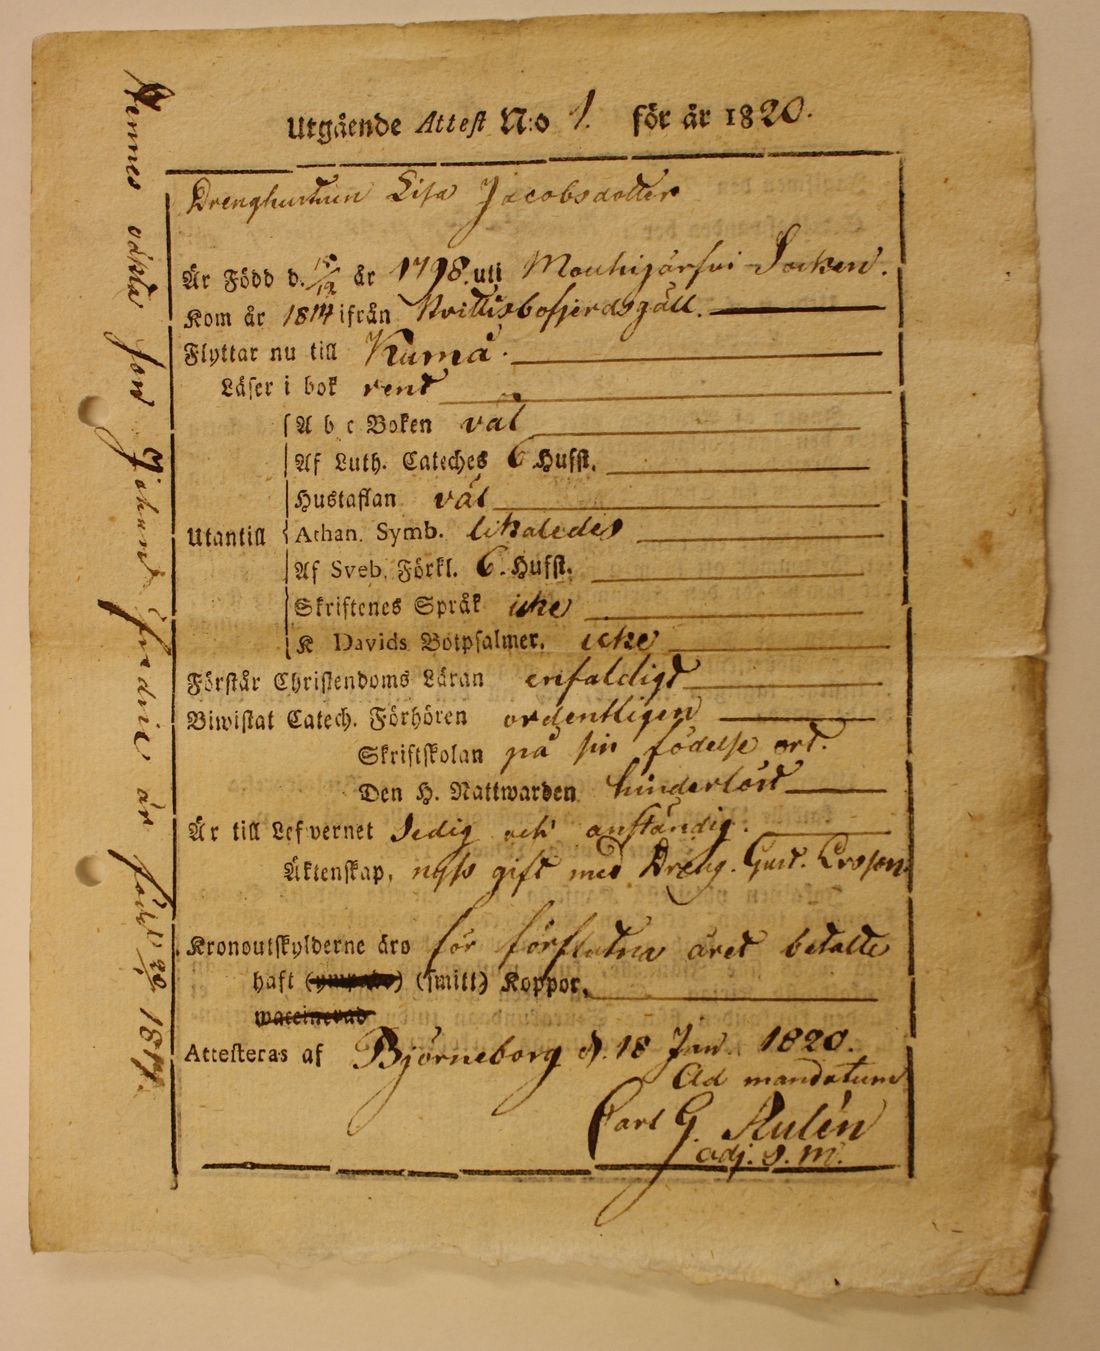 Utgående Attest N:o 1. för år 1820.
Drenghustrun Lisa Jacobsdotter
Är Född d. 18/12 år 1798. uti Mouhijärfvi Socken.
Kom år 1814 ifrån Hvittisbofjerdsgäll.
Flyttar nu till Kumå.
Läser i bok rent
A b c Boken väl
Af Luth. Cateches 6 Hufst.
Hustaflan väl
Utantill Athan. Symb. likaledes
Af Sveb. Förkl. 6. Hufst.
Skriftenes Språk icke
K Davids Botpsalmer. icke
Förstår Christendoms Läran enfaldigt
Biwistat Catech. Förhören ordentligen
Skriftskolan på sin födelse ort.
Den H. Nattwarden hinderlöst
Är till Lefvernet Sedig och anständig.
Äktenskap, nyss gift med Dreng. Gust. Ersson.
Kronoutskylderne äro för förflutna året betalte
haft (ympade) (smitt) Koppor.
waccinerad
Attesteras af Björneborg d. 18 Jan. 1820.
Ad mandatum
Carl G. Rulén
adj. s. m.
Hennes oäkta son Johand Fredric är född 1817.